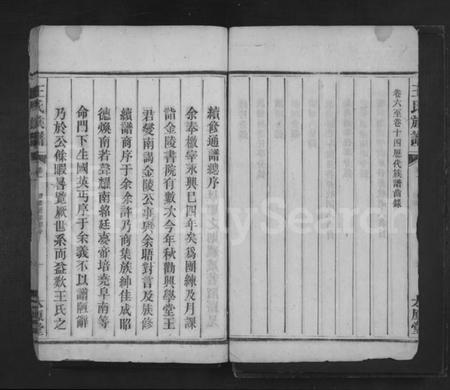 王氏族譜
卷六至卷十四歷代族譜齒錄
太原堂
續修通譜總序
余奉檄宰永興已四年矣為團練及月課
詣金陵書院有數次今年秋勸興學堂王
君燮南謁金陵公事與余晤對言及族修
續譜商序于余余許乃商集族紳佳成昭
德煥南若葦耀南銘廷嘉帝培堯阜南等
命門下生國英丐序于余義不以譾陋辭
乃於公餘暇晷覽厥世系而益歎王氏之
王氏族譜
太原堂
MySearch